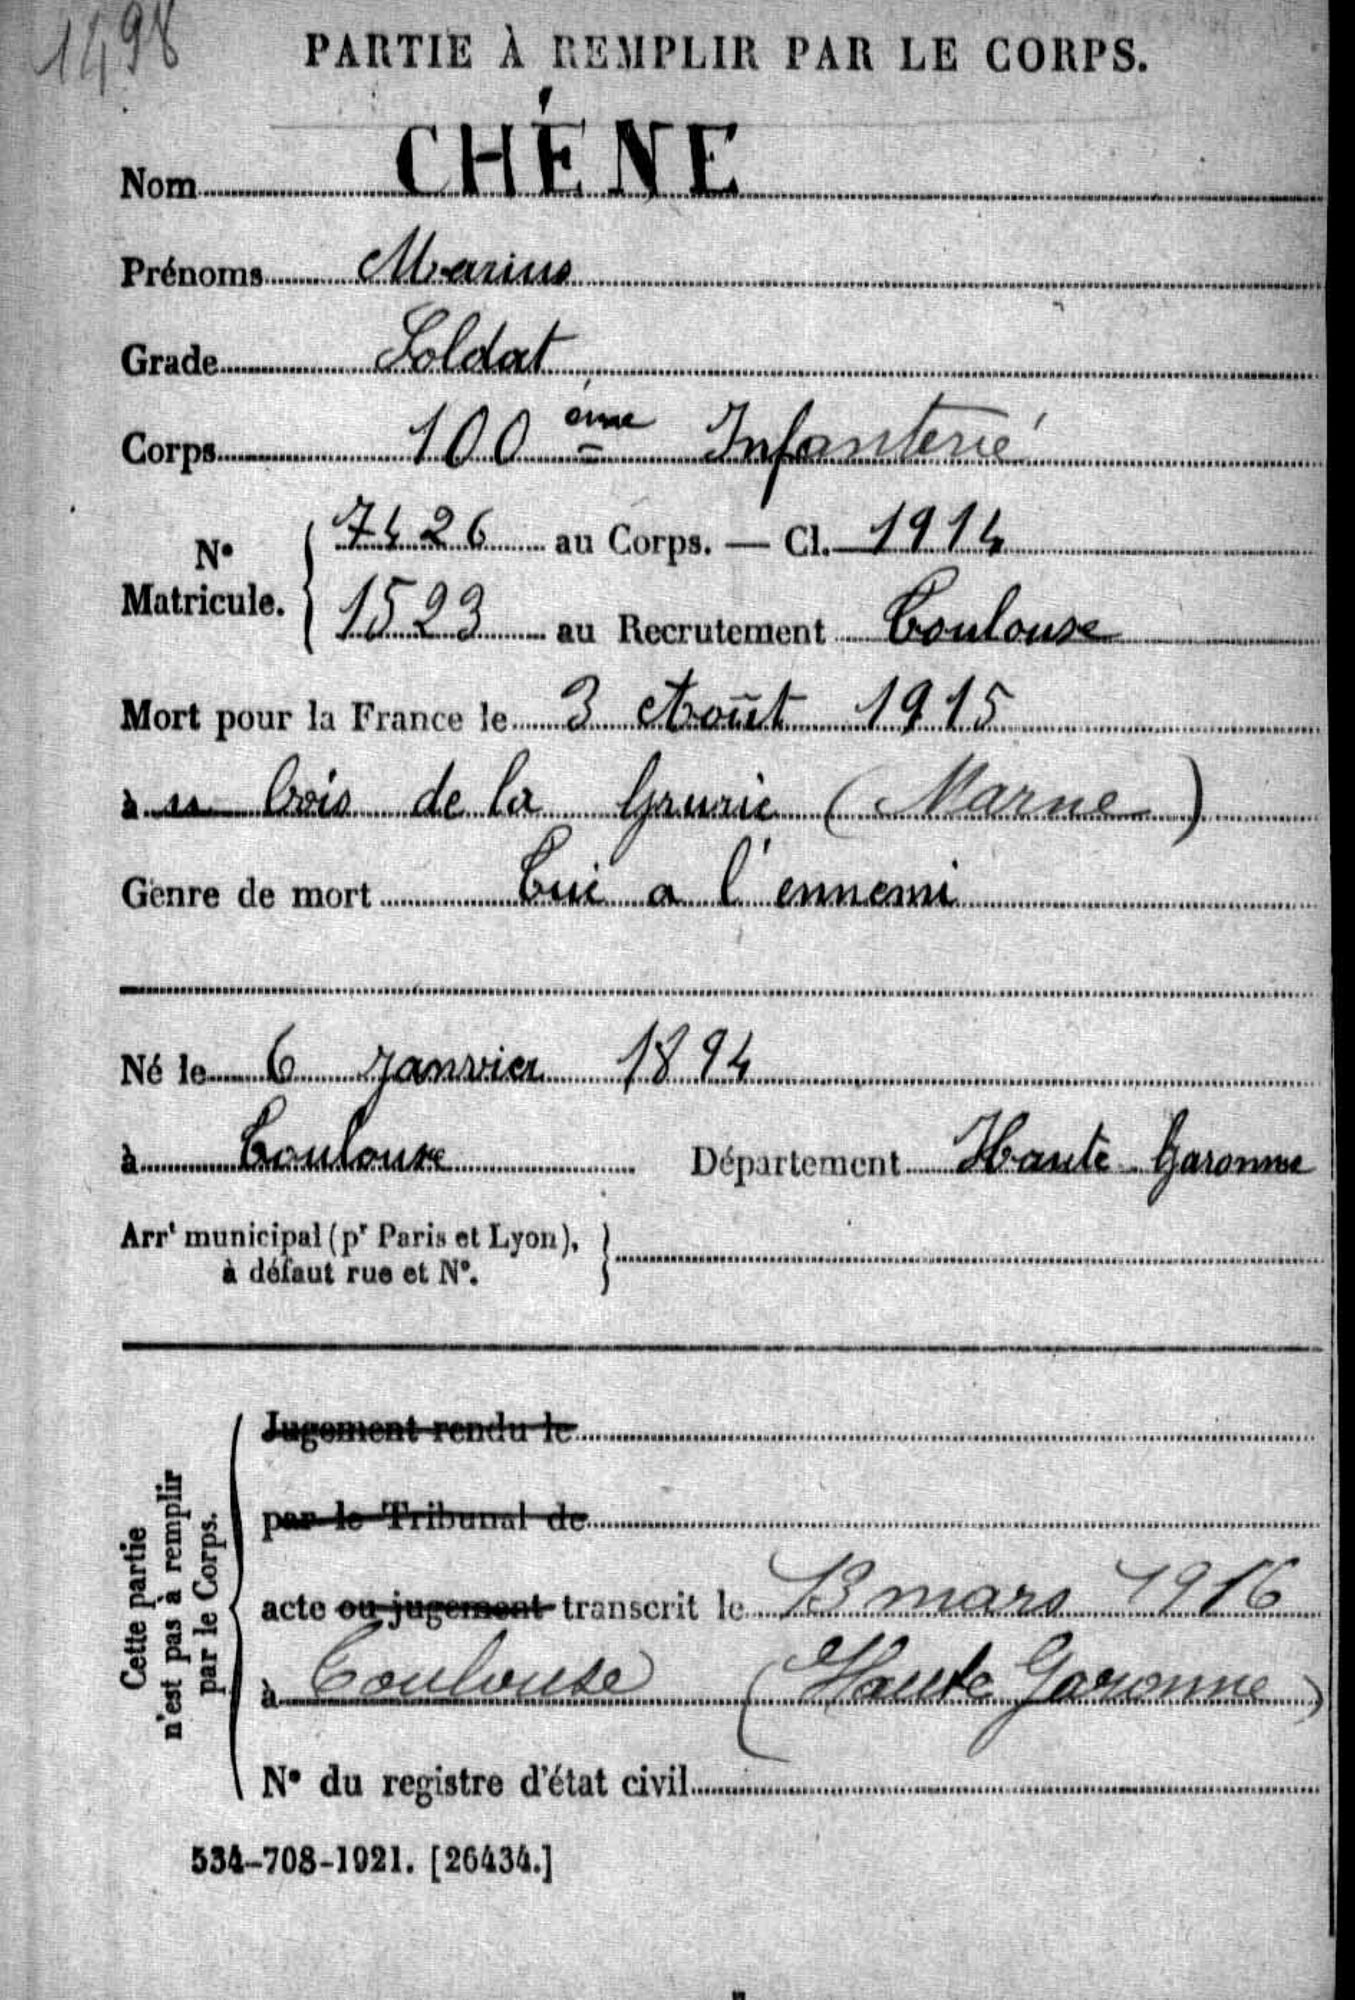 1498
PARTIE À REMPLIR PAR LE CORPS.
Nom CHÉNE
Prénoms Marius
Grade Soldat
Corps 100 ème Infanterie
N° Matricule. { 7426 au Corps. — Cl. 1914
1523 au Recrutement Toulouse
Mort pour la France le 3 Août 1915
à bois de la Grurie (Marne)
Genre de mort Tué a l'ennemi
Né le 6 Janvier 1894
à Toulouse Département Haute Garonne
Arrt municipal (pr Paris et Lyon),
à défaut rue et N°.
Cette partie
n'est pas à remplir
par le Corps.
Jugement rendu le
par le Tribunal de
acte ou jugement transcrit le 13 mars 1916
à Toulouse (Haute Garonne)
N° du registre d'état civil
534-708-1921. [26434.]